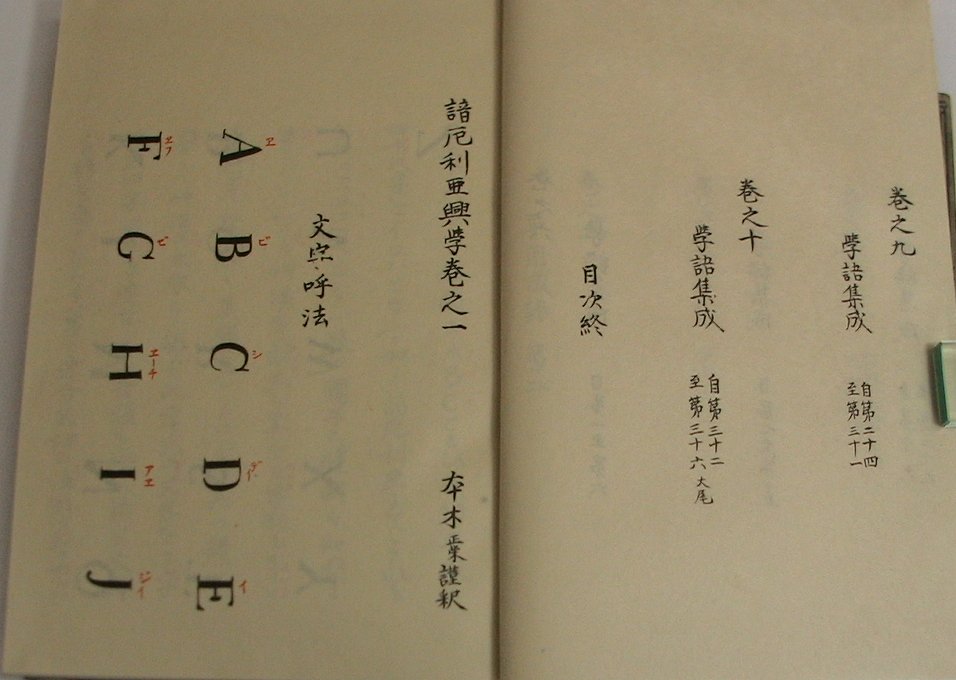 巻之九
學語集成
自第二十四
至第三十一
巻之十
學語集成
自第三十二
至第三十六大尾
目次終
諳厄利亜興學巻之一
本木正栄謹釈
文字呼法
A B C D E
ヱ ビ シ デイ イ
F G H I J
ヱフ ビ エーチ アエ ジイ